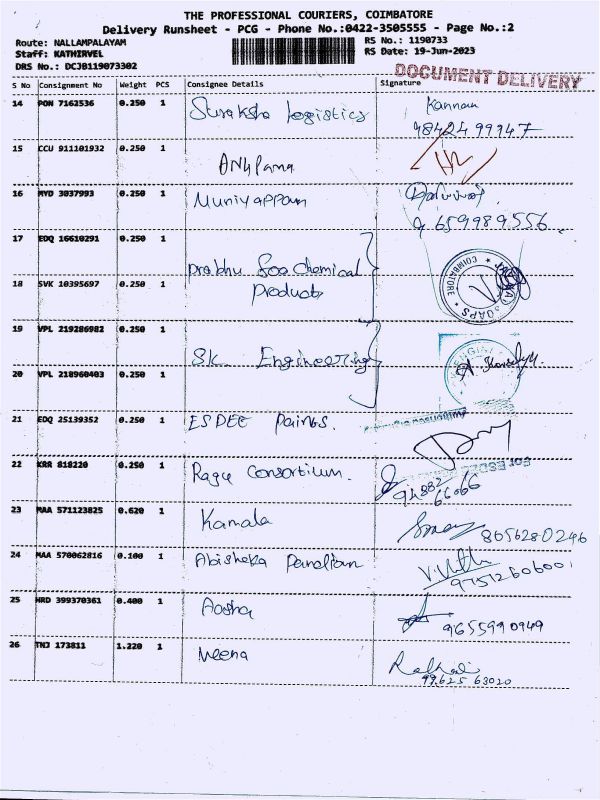 THE PROFESSIONAL COURIERS, COIMBATORE
Delivery Runsheet - PCG - Phone No.:0422-3505555 - Page No.:2
Route: NALLAMPALAYAM RS No.: 1190733
Staff: KATHIRVEL RS Date: 19-Jun-2023
DRS No.: DCJB119073302
DOCUMENT DELIVERY
S No Consignment No Weight PCS Consignee Details Signature
14 PON 7162536 0.250 1 Suraksha Logistics Kannan
98424 99947
15 CCU 911101932 0.250 1 ANuPama
16 MYD 3037993 0.250 1 Muniyappan
9659989556
17 EDQ 16610291 0.250 1
Prabhu Soa Chemical
18 SVK 10395697 0.250 1 Products
COIMBATORE
SOAPS
19 VPL 219286982 0.250 1
SK Engineering
20 VPL 218960403 0.250 1
21 EDQ 25139352 0.250 1 ESDEE Paints.
22 KRR 818220 0.250 1 Ragu Consortium.
94882
66066
23 MAA 571123825 0.620 1 Kamala
8056280246
24 MAA 570062816 0.100 1 Abisheka Pandian
9751260600
25 HRD 399370361 0.400 1 Aasha
9655990949
26 TNJ 173811 1.220 1 Meena
99625 63020